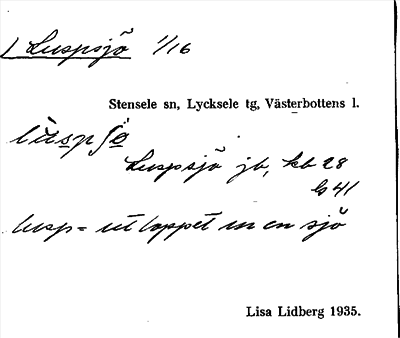 1 Luspsjö 1/16
Stensele sn, Lycksele tg, Västerbottens l.
Luspsjö jb, kb 28
G 41
lusp = utloppet ur en sjö
Lisa Lidberg 1935.